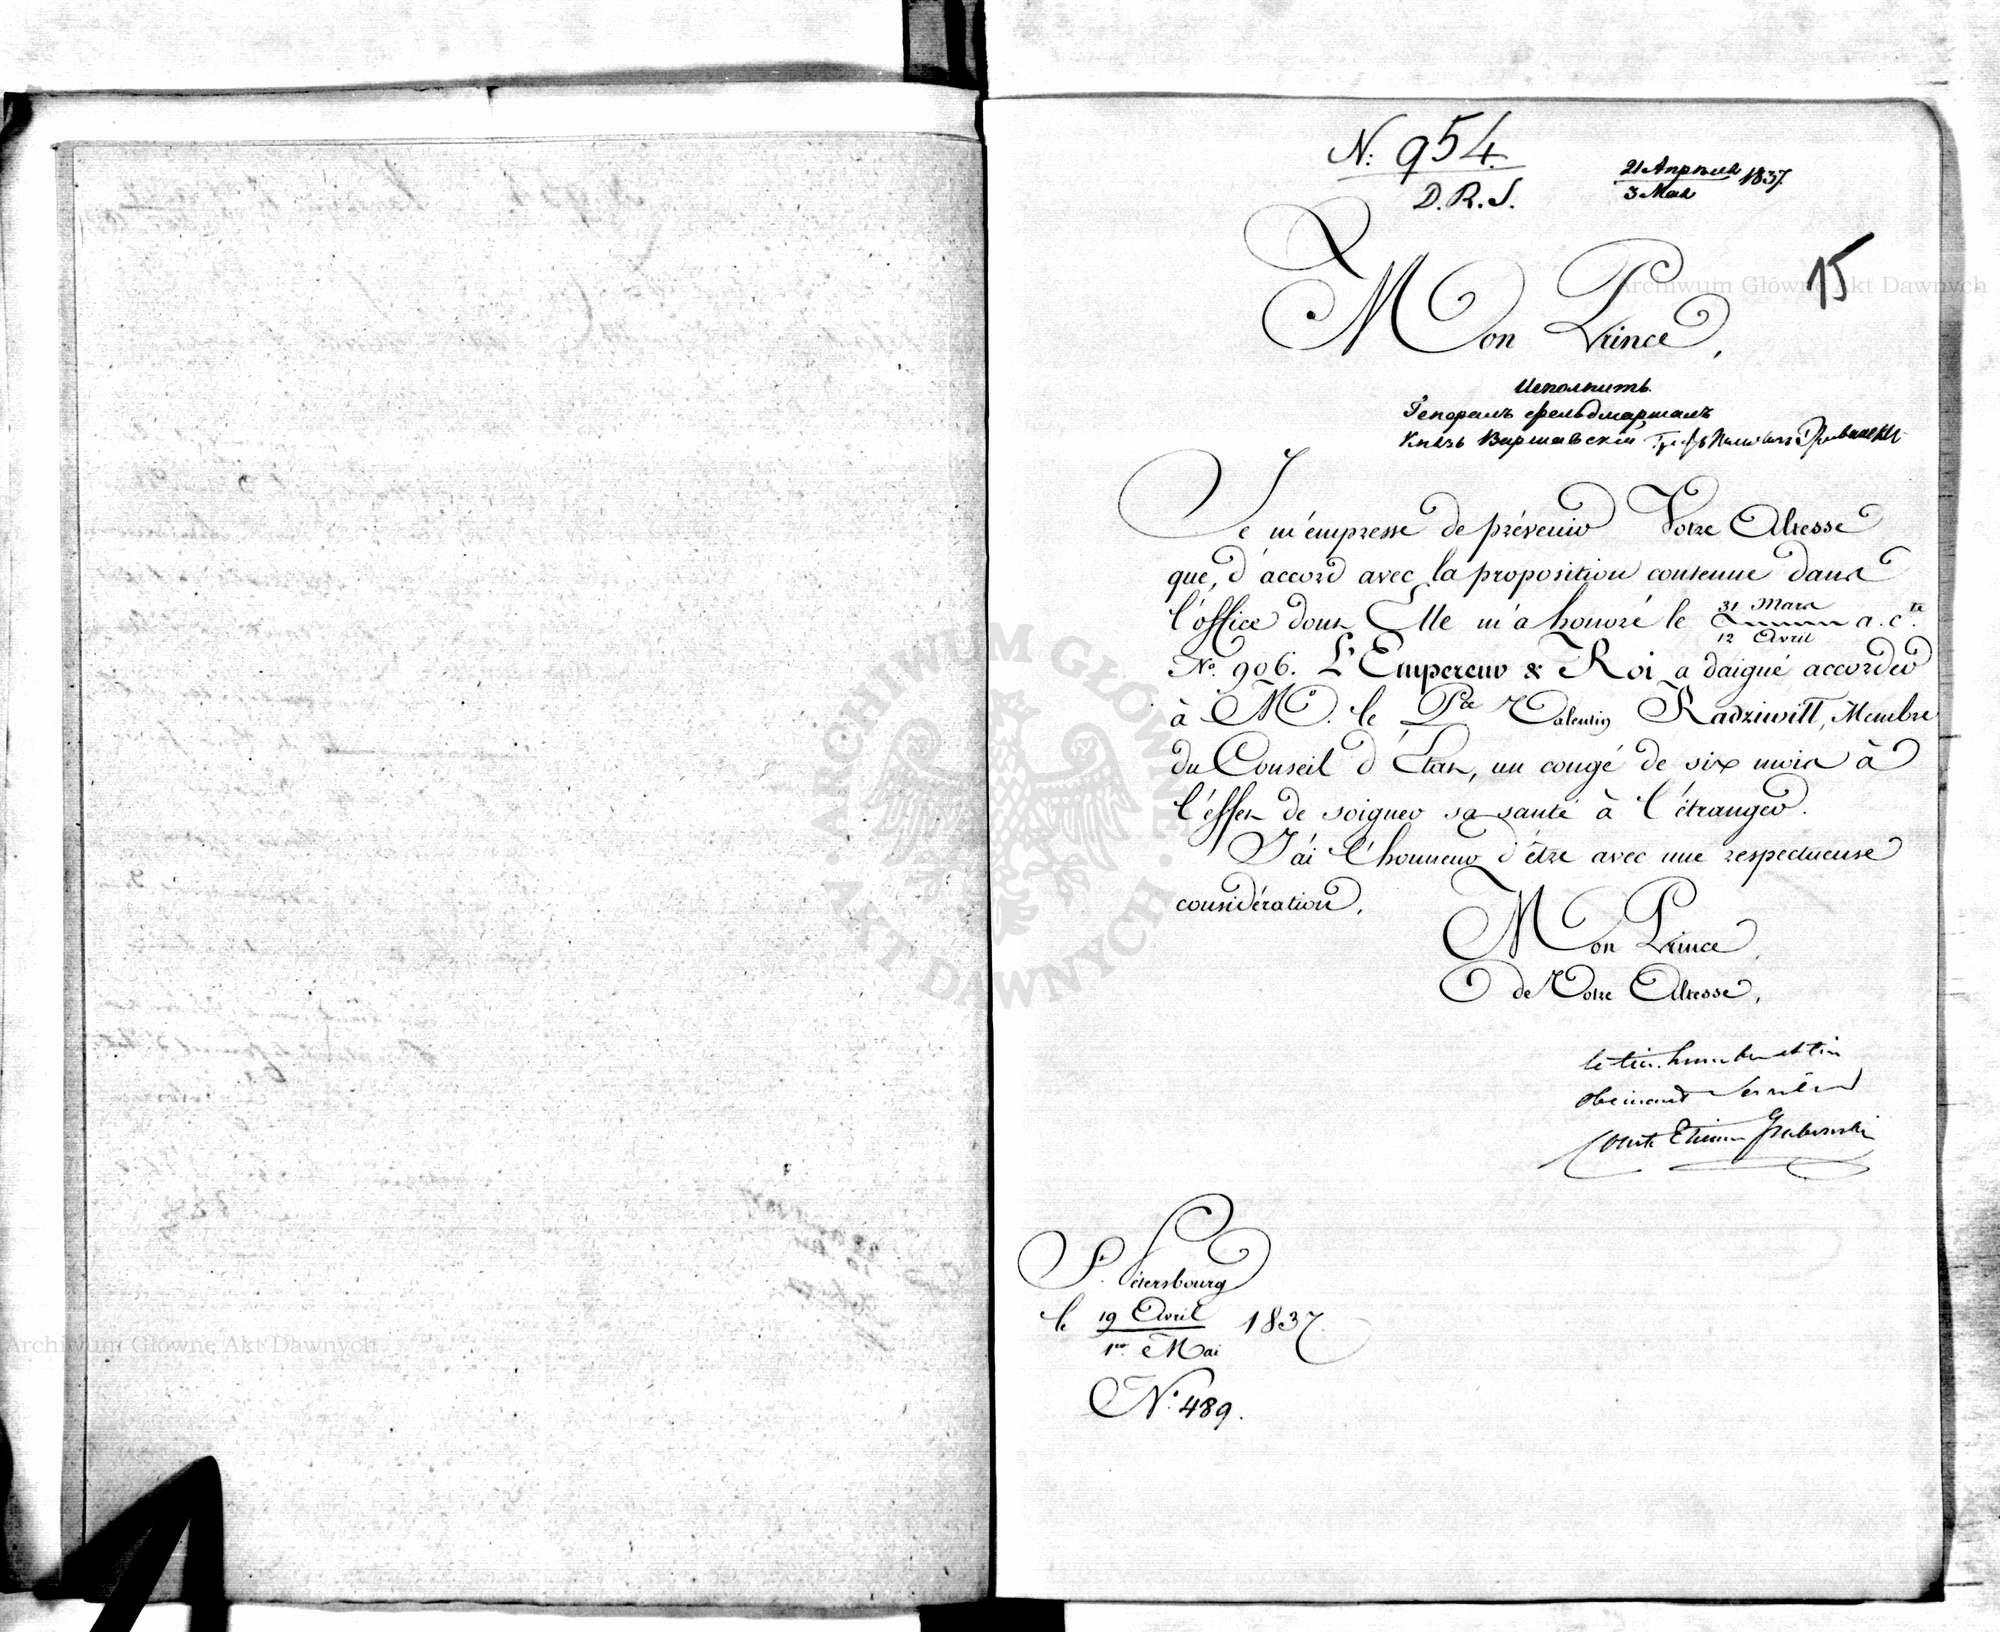 N: 954.
D. R. S.
21 Апрѣля
3 Мая 1837.
15
Mon Prince,
Исполнить.
Генералъ Фельдмаршалъ
Князь Варшавскій, Графъ
Je m'empresse de prévenir Votre Altesse
que, d'accord avec la proposition contenue dans
l'office dont Elle m'a honoré le 31 Mars
12 Avril a. c.te
No. 906. L'Empereur & Roi a daigné accorder
à Mr. le Pce Valentin Radziwill, Membre
du Conseil d'État, un congé de six mois à
l'effet de soigner sa santé à l'étranger.
J'ai l'honneur d'être avec une respectueuse
considération,
Mon Prince,
de Votre Altesse,
le très humble et très
obéissant Serviteur
Comte Etienne Grabowski
St. Pétersbourg
le 19 Avril
1er Mai 1837.
No. 489.
Archiwum Główne Akt Dawnych
Archiwum Główne Akt Dawnych
ARCHIWUM GŁÓWNE
AKT DAWNYCH